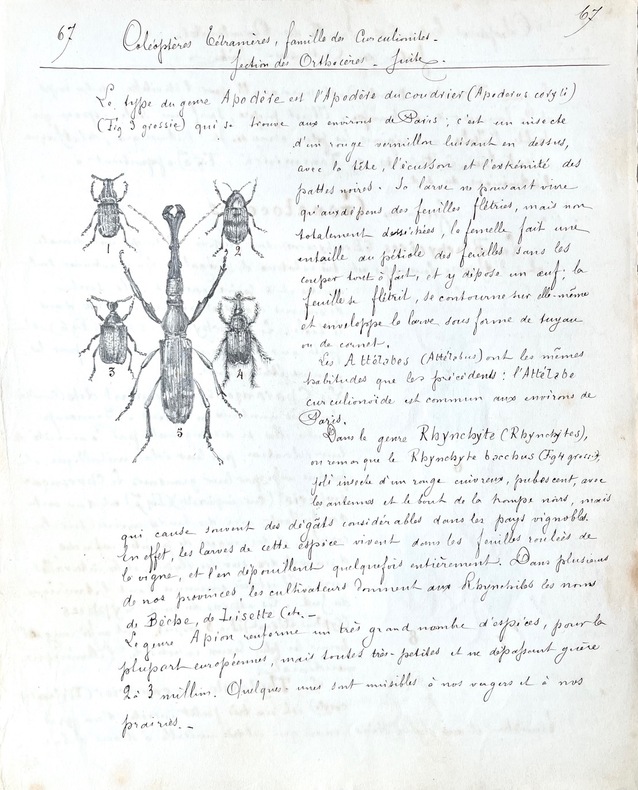 67 67
Coléoptères Tétramères, famille des Curculionites.
Section des Orthocères. Suite.
Le type du genre Apodère est l'Apodère du coudrier (Apoderus coryli)
(Fig 3 grossie) qui se trouve aux environs de Paris ; c'est un insecte
d'un rouge vermillon luisant en dessus,
avec la tête, l'écusson et l'extrémité des
pattes noires. Sa larve ne pouvant vivre
qu'aux dépens des feuilles flétries, mais non
totalement desséchées, la femelle fait une
entaille au pétiole des feuilles sans les
couper tout à fait, et y dépose un œuf ; la
feuille se flétrit, se contourne sur elle-même
et enveloppe la larve sous forme de tuyau
ou de cornet.
Les Attélabes (Attelabus) ont les mêmes
habitudes que les précédents : l'Attélabe
curculionoïde est commun aux environs de
Paris.
Dans le genre Rhynchyte (Rhynchytes),
on remarque le Rhynchyte bacchus (Fig 4 grossie),
joli insecte d'un rouge cuivreux, pubescent, avec
les antennes et le bout de la trompe noirs, mais
qui cause souvent des dégâts considérables dans les pays vignobles.
En effet, les larves de cette espèce vivent dans les feuilles roulées de
la vigne, et l'en dépouillent quelquefois entièrement. Dans plusieurs
de nos provinces, les cultivateurs donnent aux Rhynchites les noms
de Bèche, de Lisette &c. –
Le genre Apion renferme un très grand nombre d'espèces, pour la
plupart européennes, mais toutes très-petites et ne dépassant guère
2 à 3 millim. Quelques-unes sont nuisibles à nos vergers et à nos
prairies. –
1
2
3
4
5